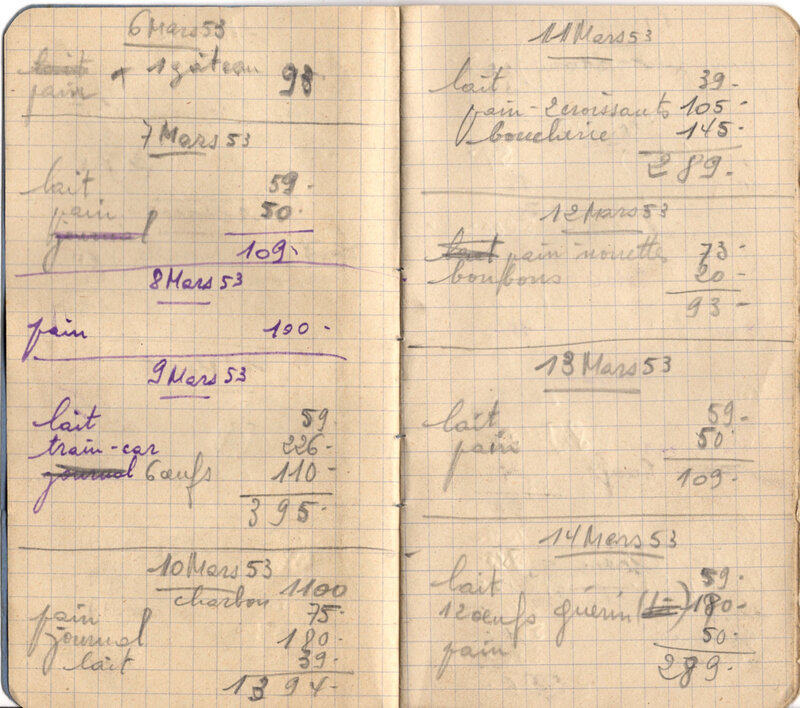 6 Mars 53
lait
pain + 1 gâteau 93
7 Mars 53
lait 59-
pain 50-
journal
109-
8 Mars 53
pain 100-
9 Mars 53
lait 59-
train-car 226-
journal 6 œufs 110-
395-
10 Mars 53
charbon 1100
pain 75-
journal 180-
lait 39-
1394-
11 Mars 53
lait 39-
pain-2croissants 105-
boucherie 145-
289-
12 Mars 53
lait pain nouettes 73-
bonbons 20-
93-
13 Mars 53
lait 59-
pain 50-
109-
14 Mars 53
lait 59-
12 œufs guérin 180-
pain 50-
289-